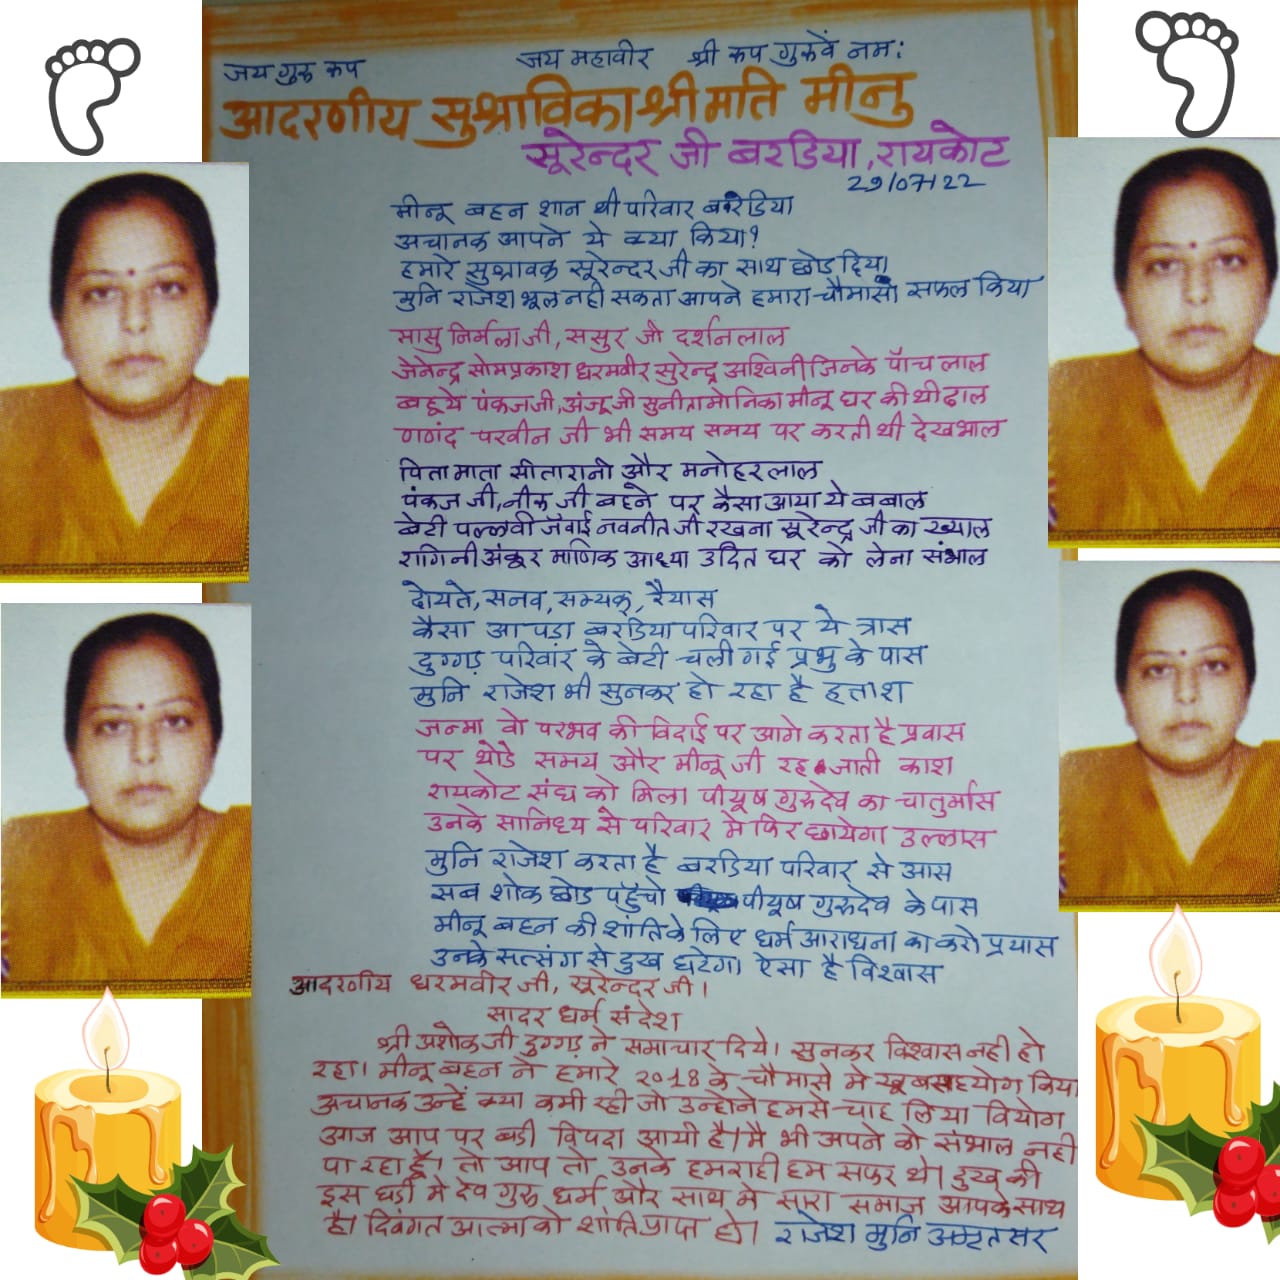 जय गुरु रूप जय महावीर श्री रूप गुरुवें नमः
आदरणीय सुश्राविका श्रीमति मीनु
सूरेन्दर जी बरडिया, रायकोट
29/07/22
मीनू बहन शान थी परिवार बरडिया
अचानक आपने ये क्या किया?
हमारे सुश्रावक सूरेन्दर जी का साथ छोड दिया
मुनि राजेश भूल नही सकता आपने हमारा चौमासा सफल किया
सासु निर्मला जी, ससुर जी दर्शनलाल
जेनेन्द्र सोमप्रकाश धरमवीर सुरेन्द्र अश्विनी जिनके पाँच लाल
बहूये पंकजजी, अंजू जी सुनीता मोनिका मीनू घर की थी ढाल
णणंद परवीन जी भी समय समय पर करती थी देखभाल
पिता माता सीतारानी और मनोहरलाल
पंकज जी, नीरू जी बहने पर कैसा आया ये बबाल
बेटी पल्लवी जँवाई नवनीत जी रखना सूरेन्द्र जी का ख्याल
रागिनी अंकुर माणिक आध्या उदित घर को लेना संभाल
सनव, सम्यक्, रैयास
कैसा आ पडा बरडिया परिवार पर ये त्रास
दुग्गड़ परिवार के बेटी चली गई प्रभु के पास
मुनि राजेश भी सुनकर हो रहा है हताश
जन्मा वो परभव की विदाई पर आगे करता है प्रवास
पर थोडे समय और मीनू जी रह जाती काश
रायकोट संघ को मिला पीयूष गुरुदेव का चातुर्मास
उनके सानिध्य से परिवार मे फिर छायेगा उल्लास
मुनि राजेश करता है बरडिया परिवार से आस
सब शोक छोड पहुँचो पीयूष गुरुदेव के पास
मीनू बहन की शांति के लिए धर्म आराधना का करो प्रयास
उनके सत्संग से दुख घटेगा ऐसा है विश्वास
आदरणीय धरमवीर जी, सूरेन्दर जी।
सादर धर्म संदेश
श्री अशोक जी दुग्गड़ ने समाचार दिये। सुनकर विश्वास नही हो
रहा। मीनू बहन ने हमारे 2018 के चौमासे मे खूब सहयोग किया
अचानक उन्हें क्या कमी रही जो उन्होने हमसे चाह लिया वियोग
आज आप पर बडी विपदा आयी है। मै भी अपने को संभाल नही
पा रहा हूँ। तो आप तो उनके हमराही हम सफर थे। दुख की
इस घडी मे देव गुरु धर्म और साथ मे सारा समाज आपके साथ
है। दिवंगत आत्मा को शांति प्राप्त हो। राजेश मुनि अमृतसर